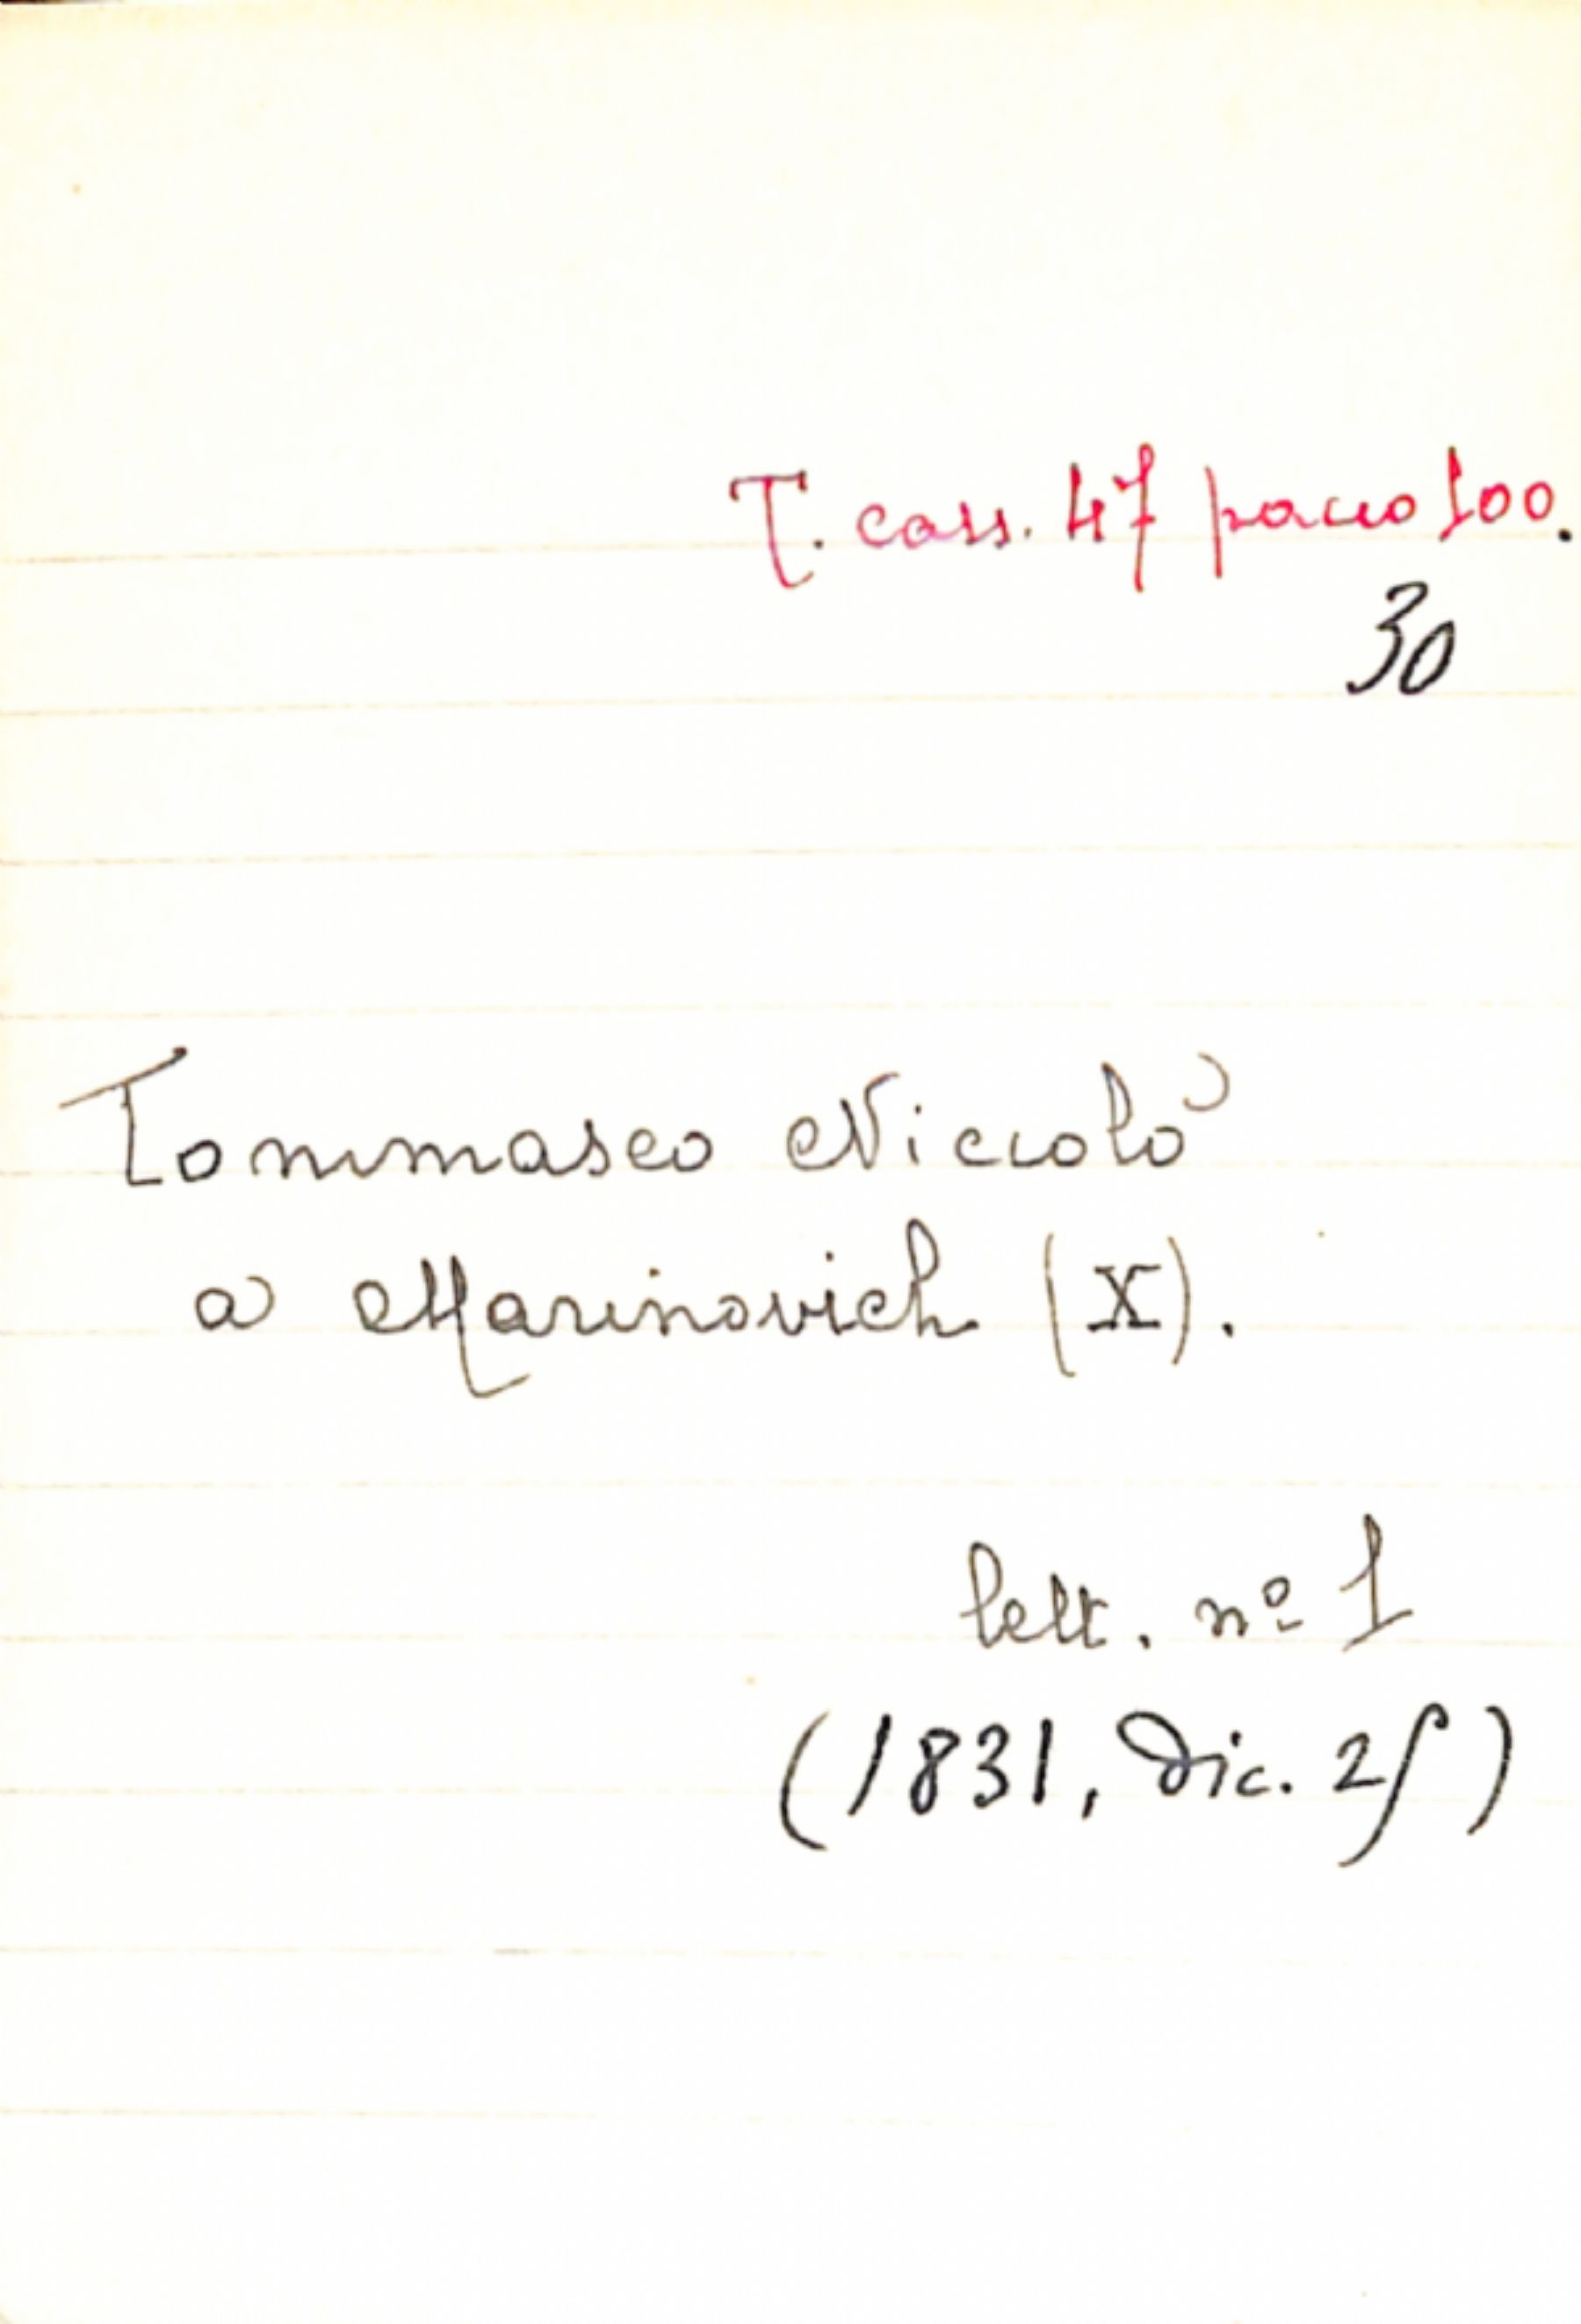 T. cass. 47 pacco 100.
30
Tommaseo Niccolò
a Marinovich (X).
lett. nº 1
(1831, Dic. 25)